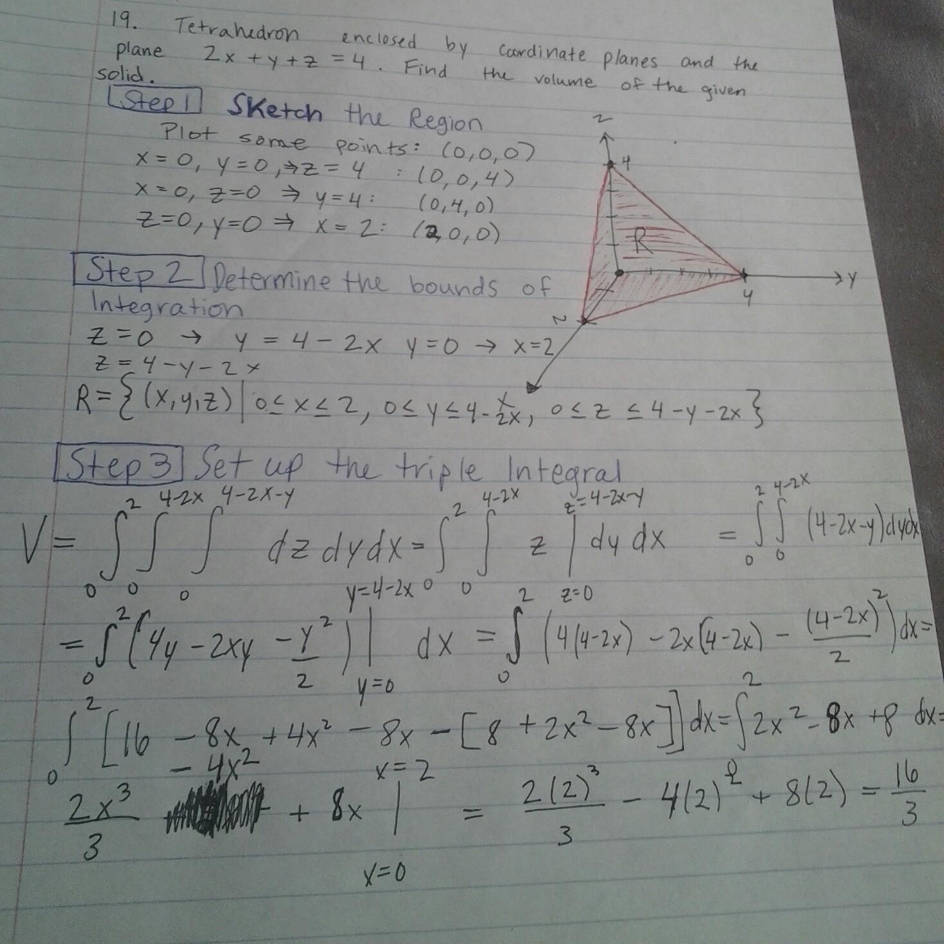 19. Tetrahedron enclosed by coordinate planes and the
plane 2x + y + z = 4. Find the volume of the given
solid.
Step 1 Sketch the Region
Plot some points: (0,0,0)
x = 0, y = 0, ⇒ z = 4 : (0,0,4)
x = 0, z = 0 ⇒ y = 4: (0,4,0)
z = 0, y = 0 ⇒ x = 2: (2,0,0)
z
4
R
y
4
2
Step 2 Determine the bounds of
Integration
z = 0 → y = 4 - 2x y = 0 → x = 2
z = 4 - y - 2x
x
R = {(x,y,z) | 0 ≤ x ≤ 2, 0 ≤ y ≤ 4 - 2x, 0 ≤ z ≤ 4 - y - 2x}
Step 3 Set up the triple Integral
V = ∫₀² ∫₀^(4-2x) ∫₀^(4-2x-y) dz dy dx = ∫₀² ∫₀^(4-2x) z |_(z=0)^(z=4-2x-y) dy dx = ∫₀² ∫₀^(4-2x) (4-2x-y) dy dx
= ∫₀² (4y - 2xy - y²/2) |_(y=0)^(y=4-2x) dx = ∫₀² (4(4-2x) - 2x(4-2x) - (4-2x)²/2) dx =
∫₀² [16 - 8x + 4x² - 8x - [8 + 2x² - 8x]] dx = ∫² 2x² - 8x + 8 dx =
2x³/3 - 4x² + 8x |_(x=0)^(x=2) = 2(2)³/3 - 4(2)² + 8(2) = 16/3